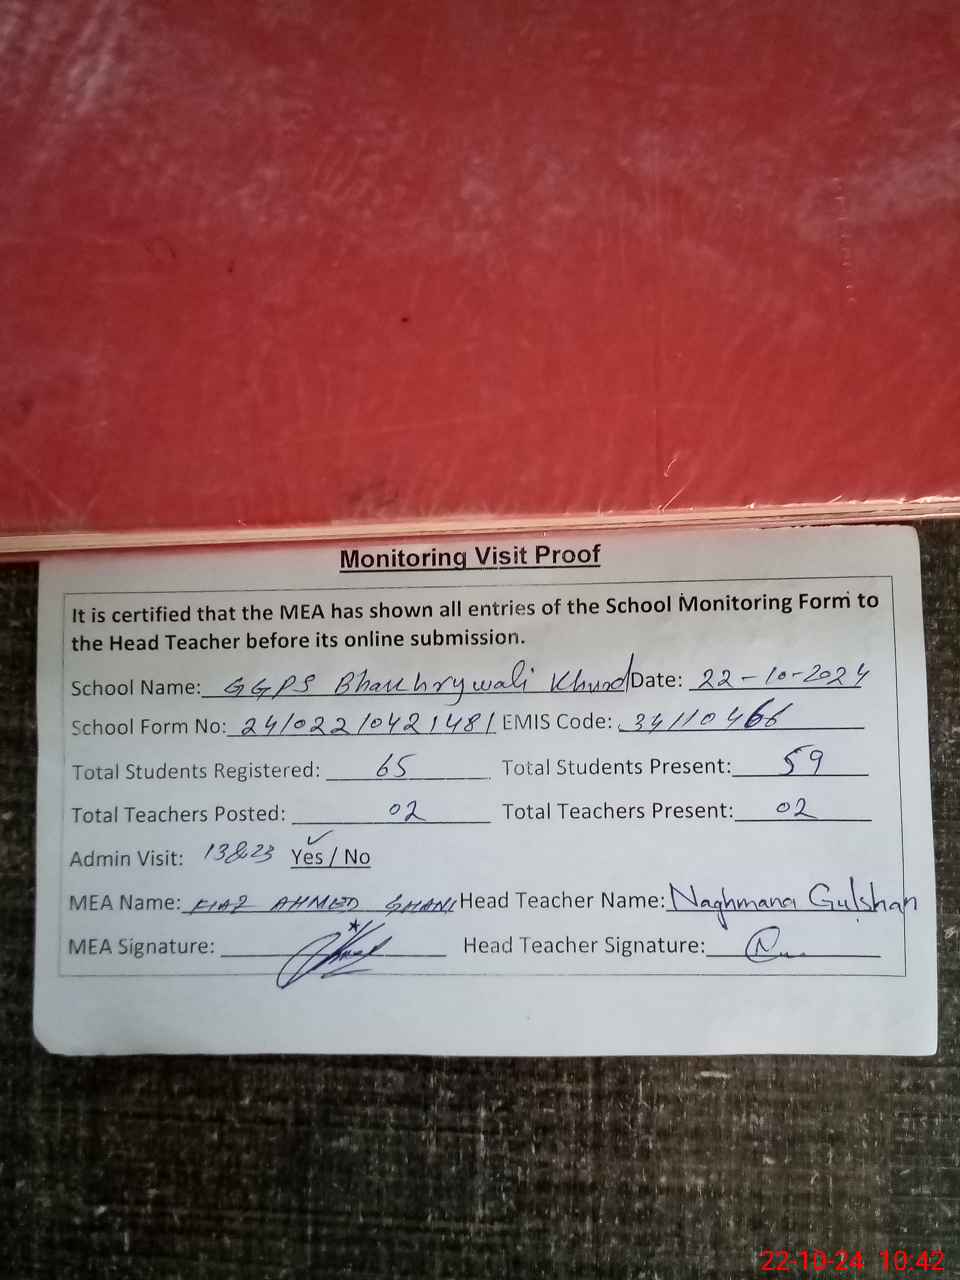 Monitoring Visit Proof
It is certified that the MEA has shown all entries of the School Monitoring Form to
the Head Teacher before its online submission.
School Name: GGPS Bhakhrywali Khurd Date: 22-10-2024
School Form No: 24/022/0421481 EMIS Code: 34110466
Total Students Registered: 65 Total Students Present: 59
Total Teachers Posted: 02 Total Teachers Present: 02
Admin Visit: 13&23 Yes / No
MEA Name: FIAZ AHMED GHANI Head Teacher Name: Naghmana Gulshan
MEA Signature: Head Teacher Signature:
22-10-24 10:42